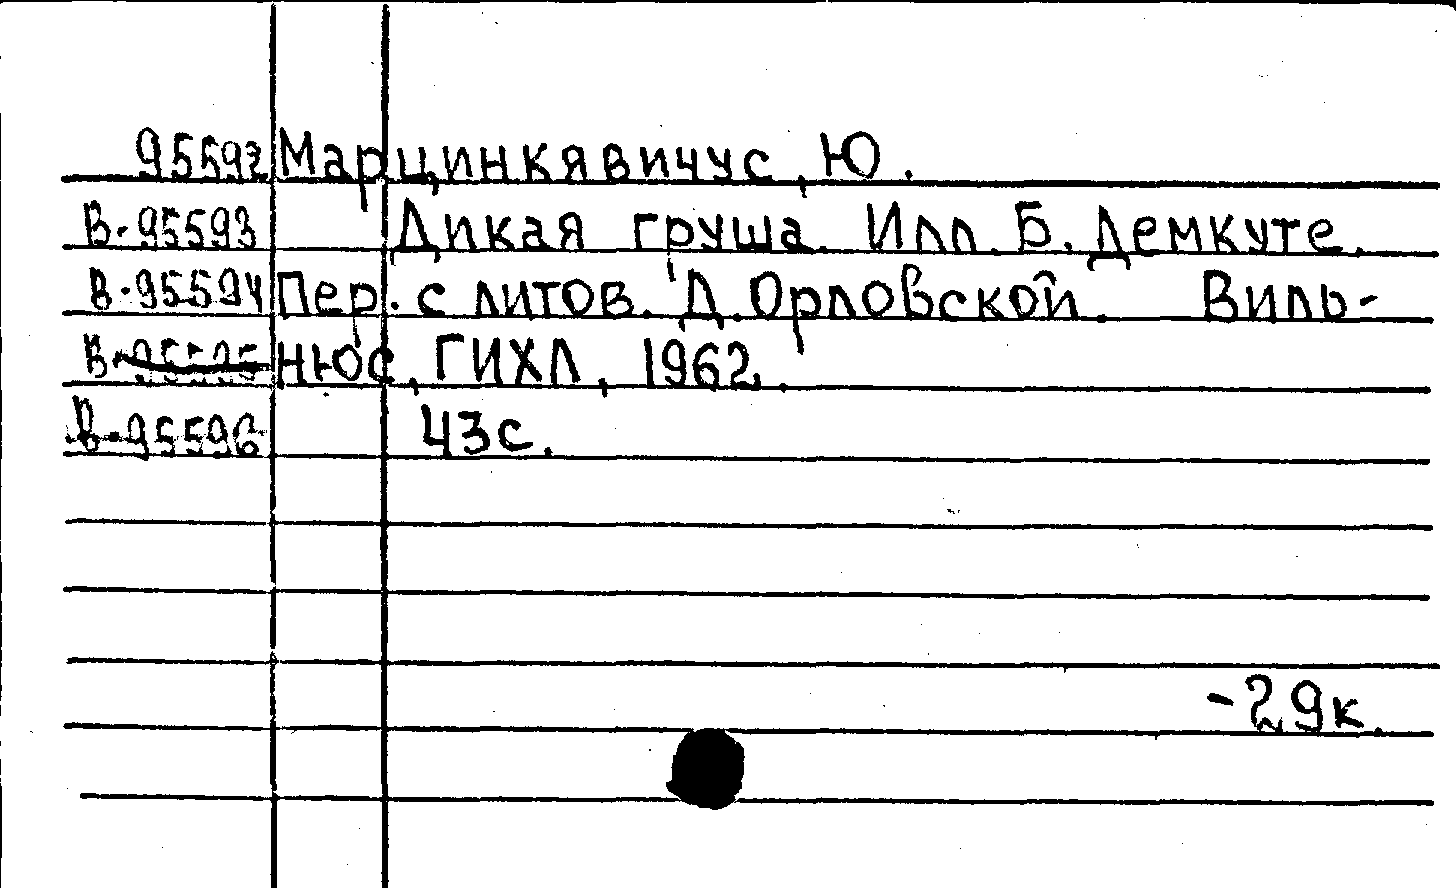 95592 Марцинкявичус, Ю.
В-95593 Дикая груша. Илл. Б. Демкуте.
В-95594 Пер. с литов. Д. Орловской. Виль-
В-95595 нюс, ГИХЛ, 1962.
В-95596 43с.
-29к.